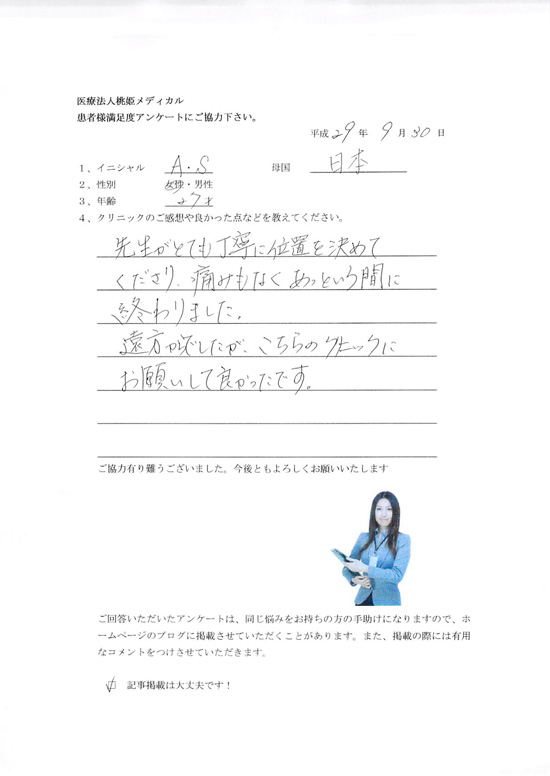 医療法人桃姫メディカル
患者様満足度アンケートにご協力下さい。
平成 29 年 9 月 30 日
1、イニシャル A・S 母国 日本
2、性別 女性・男性
3、年齢 27才
4、クリニックのご感想や良かった点などを教えてください。
先生がとても丁寧に位置を決めて
くださり、痛みもなくあっという間に
終わりました。
遠方からでしたが、こちらのクリニックに
お願いして良かったです。
ご協力有り難うございました。今後ともよろしくお願いいたします
ご回答いただいたアンケートは、同じ悩みをお持ちの方の手助けになりますので、ホ
ームページのブログに掲載させていただくことがあります。また、掲載の際には有用
なコメントをつけさせていただきます。
記事掲載は大丈夫です！